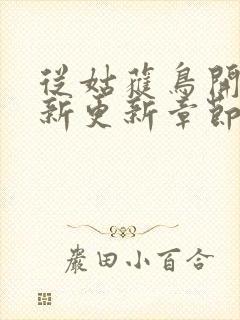 從姑蘿鳥開
新更新章節
嚴田小百合